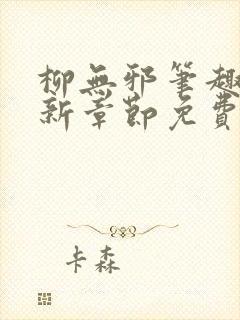 柳無邪筆趣
新章節免費
卡森